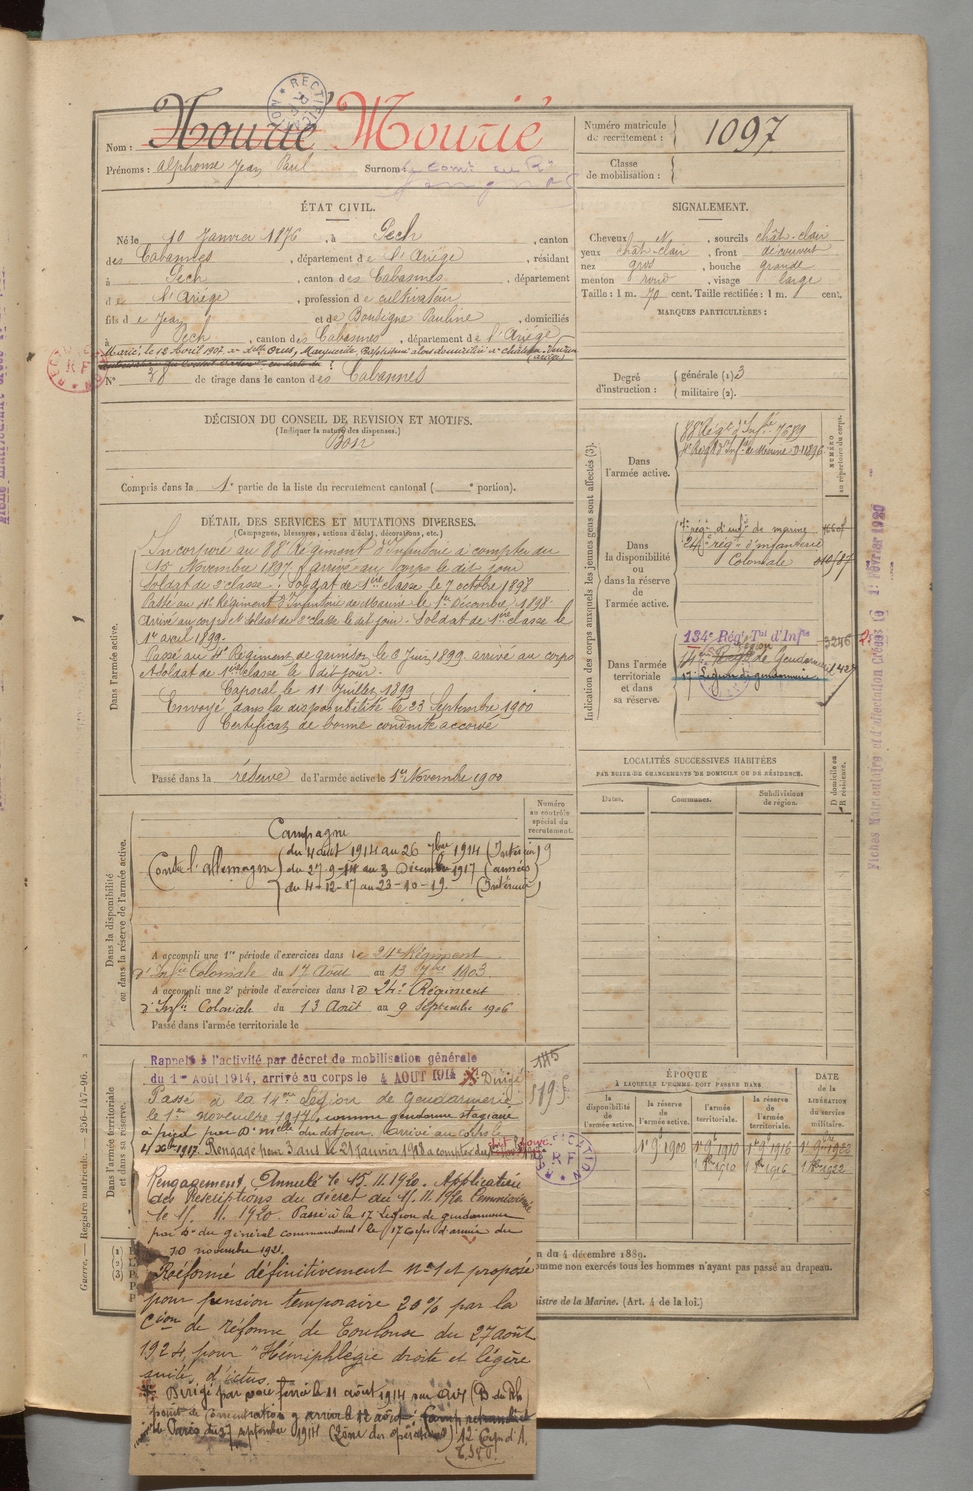 Nom : Mourié Mourié
RECTIFICATION R F
Prénoms : Alphonse Jean Paul Surnoms :
Numéro matricule de recrutement : 1097
Classe de mobilisation :
ÉTAT CIVIL.
Né le 10 Janvier 1876, à Pech, canton
des Cabannes, département de l'Ariège, résidant
à Pech, canton des Cabannes, département
de l'Ariège, profession de cultivateur
fils de Jean et de Boutigne Pauline, domiciliés
à Pech, canton des Cabannes, département de l'Ariège
Marié le 12 Avril 1907 à Delle Marguerite, Joséphine alors domiciliée à Château-Verdun (Ariège)
N° 38 de tirage dans le canton des Cabannes
SIGNALEMENT.
Cheveux N, sourcils chât-clair
yeux chât-clair, front découvert
nez gros, bouche grande
menton rond, visage large
Taille : 1 m. 70 cent. Taille rectifiée : 1 m. cent.
MARQUES PARTICULIÈRES :
Degré d'instruction : générale (1) 3
militaire (2).
DÉCISION DU CONSEIL DE REVISION ET MOTIFS.
(Indiquer la nature des dispenses.)
Bon
Compris dans la 1e partie de la liste du recrutement cantonal ( e portion).
DÉTAIL DES SERVICES ET MUTATIONS DIVERSES.
(Campagnes, blessures, actions d'éclat, décorations, etc.)
Dans l'armée active.
Incorporé au 88e Régiment d'Infanterie à compter du
15 Novembre 1897, arrivé au corps le dit jour
soldat de 2e classe. Soldat de 1ère classe le 7 octobre 1898
Passé au 4e Régiment d'Infanterie de Marine le 1er Décembre 1898
Arrivé au corps et soldat de 2e classe le dit jour. Soldat de 1ère classe le
1er avril 1899.
Passé au 4e Régiment de 6 Juin 1899 arrivé au corps
et soldat de 1ère classe le dit jour.
Caporal le 11 Juillet 1899
Envoyé dans la disponibilité le 23 Septembre 1900
Certificat de bonne conduite accordé
Passé dans la réserve de l'armée active le 1er Novembre 1900
Indication des corps auxquels les jeunes gens sont affectés (3).
NUMÉRO au répertoire du corps.
Dans l'armée active.
88e Régt d'Infie 7689
4e Régt d'Infie de Marine D 11896
Dans la disponibilité ou dans la réserve de l'armée active.
4e régt d'infie de marine
24e régt d'infanterie
Coloniale
Dans l'armée territoriale et dans sa réserve.
134e Régt Tal d'Infie 3246
de Gendarmerie
17e Légion de gendarmerie
Fiches Matriculaire et d'affectation Créées le 1 Février 1920
LOCALITÉS SUCCESSIVES HABITÉES
PAR SUITE DE CHANGEMENTS DE DOMICILE OU DE RÉSIDENCE.
Dates. Communes. Subdivisions de région. D domicile ou R résidence.
Numéro au contrôle spécial du recrutement.
Dans la disponibilité ou dans la réserve de l'armée active.
Campagne
Contre l'Allemagne
du 4 août 1914 au 26 7bre 1914 (Intérieur)
du 27-9-14 au 3 Décembre 1917 (armées)
du 4-12-17 au 23-10-19 (Intérieur)
A accompli une 1re période d'exercices dans le 24e Régiment
d'Infie Coloniale du 17 Août au 13 7bre 1903
A accompli une 2e période d'exercices dans le 24e Régiment
d'Infie Coloniale du 13 Août au 9 Septembre 1906
Passé dans l'armée territoriale le
Dans l'armée territoriale et dans sa réserve.
Rappelé à l'activité par décret de mobilisation générale
du 1er Août 1914, arrivé au corps le 4 AOUT 1914 Dirigé
Passé à la 14ème Légion de Gendarmerie
le 1er novembre 1917, comme gendarme stagiaire
à pied par Dn melle du dit jour. Arrivé au corps le
Xbre 1917. Rengagé pour 3 ans le 21 janvier 1918 à compter du
ÉPOQUE
À LAQUELLE L'HOMME DOIT PASSER DANS
la disponibilité de l'armée active.
la réserve de l'armée active.
l'armée territoriale.
la réserve de l'armée territoriale.
DATE de la LIBÉRATION du service militaire.
1er 9bre 1900 1er 9bre 1910 1er 9bre 1916 1er 9bre 1922
1910 1916 1922
RECTIFICATION R F
Rengagement, Annulé le 15.11.1920. Application
des Prescriptions du décret du 11.11.1920 Commissionné
le 11.11.1920. Passé à la 17e Légion de gendarmerie
par Dn du général commandant le 17e Corps d'armée du
10 novembre 1921.
Réformé définitivement n°1 et proposé
pour pension temporaire 20% par la
Cion de réforme de Toulouse du 27 août
1924, pour "Hémiplégie droite et légère
suite d'ictus.
Dirigé par voie ferrée le 11 août 1914 sur
point de concentration y arrivé le 12 août.
de Paris du 27 septembre 1914 (Zône des opérations) 12e Corps d'A.
n du 4 décembre 1889.
omme non exercés tous les hommes n'ayant pas passé au drapeau.
nistre de la Marine. (Art. 4 de la loi.)
Guerre. — Registre matricule. 256-147-96.